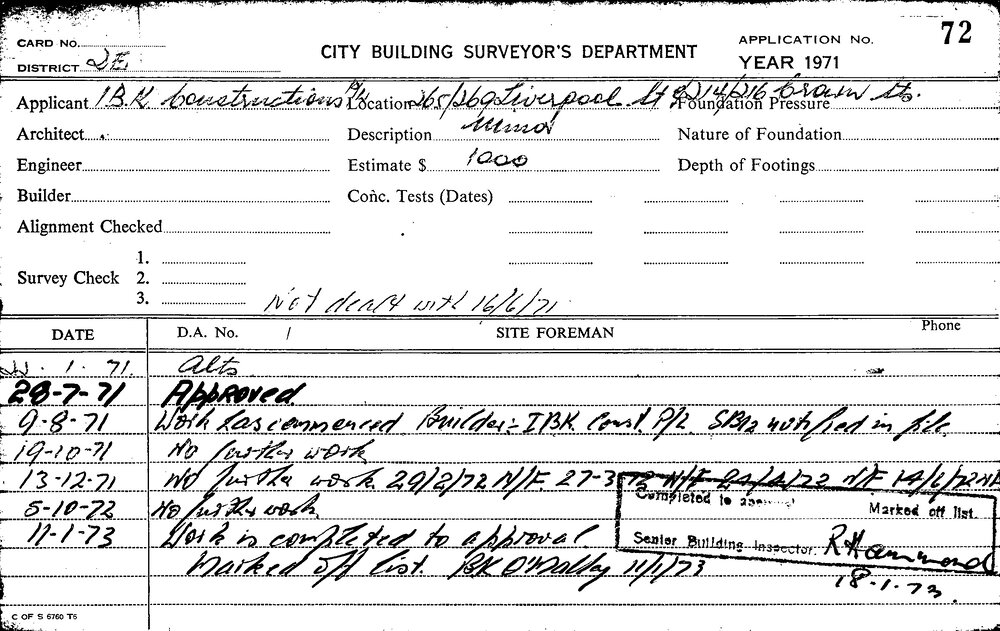 CARD No. CITY BUILDING SURVEYOR'S DEPARTMENT APPLICATION No. 72
DISTRICT 2E YEAR 1971
Applicant I.B.K. Constructions P/L Location 265/269 Liverpool St & 214/216 Crown Sts. Foundation Pressure
Architect Description Minor Nature of Foundation
Engineer Estimate $ 1000 Depth of Footings
Builder Conc. Tests (Dates)
Alignment Checked
1.
Survey Check 2.
3.
Not dealt with 16/6/71
DATE D.A. No. / SITE FOREMAN Phone
1. 71. Alts
28-7-71 Approved
9-8-71 Work has commenced Builder:- I.B.K. Const. P/L. notified in file.
19-10-71 No further work
13-12-71 No further work 29/2/72 N/F. 27-3-72 N/F 24/4/72 N/F 14/6/72 N/F
5-10-72 No further work.
11-1-73 Work is completed to approval
Marked off list. BK O'Malley 11/1/73
Completed to
Marked off list.
Senior Building Inspector. R Hammond
18-1-73.
C OF S 6760 T6